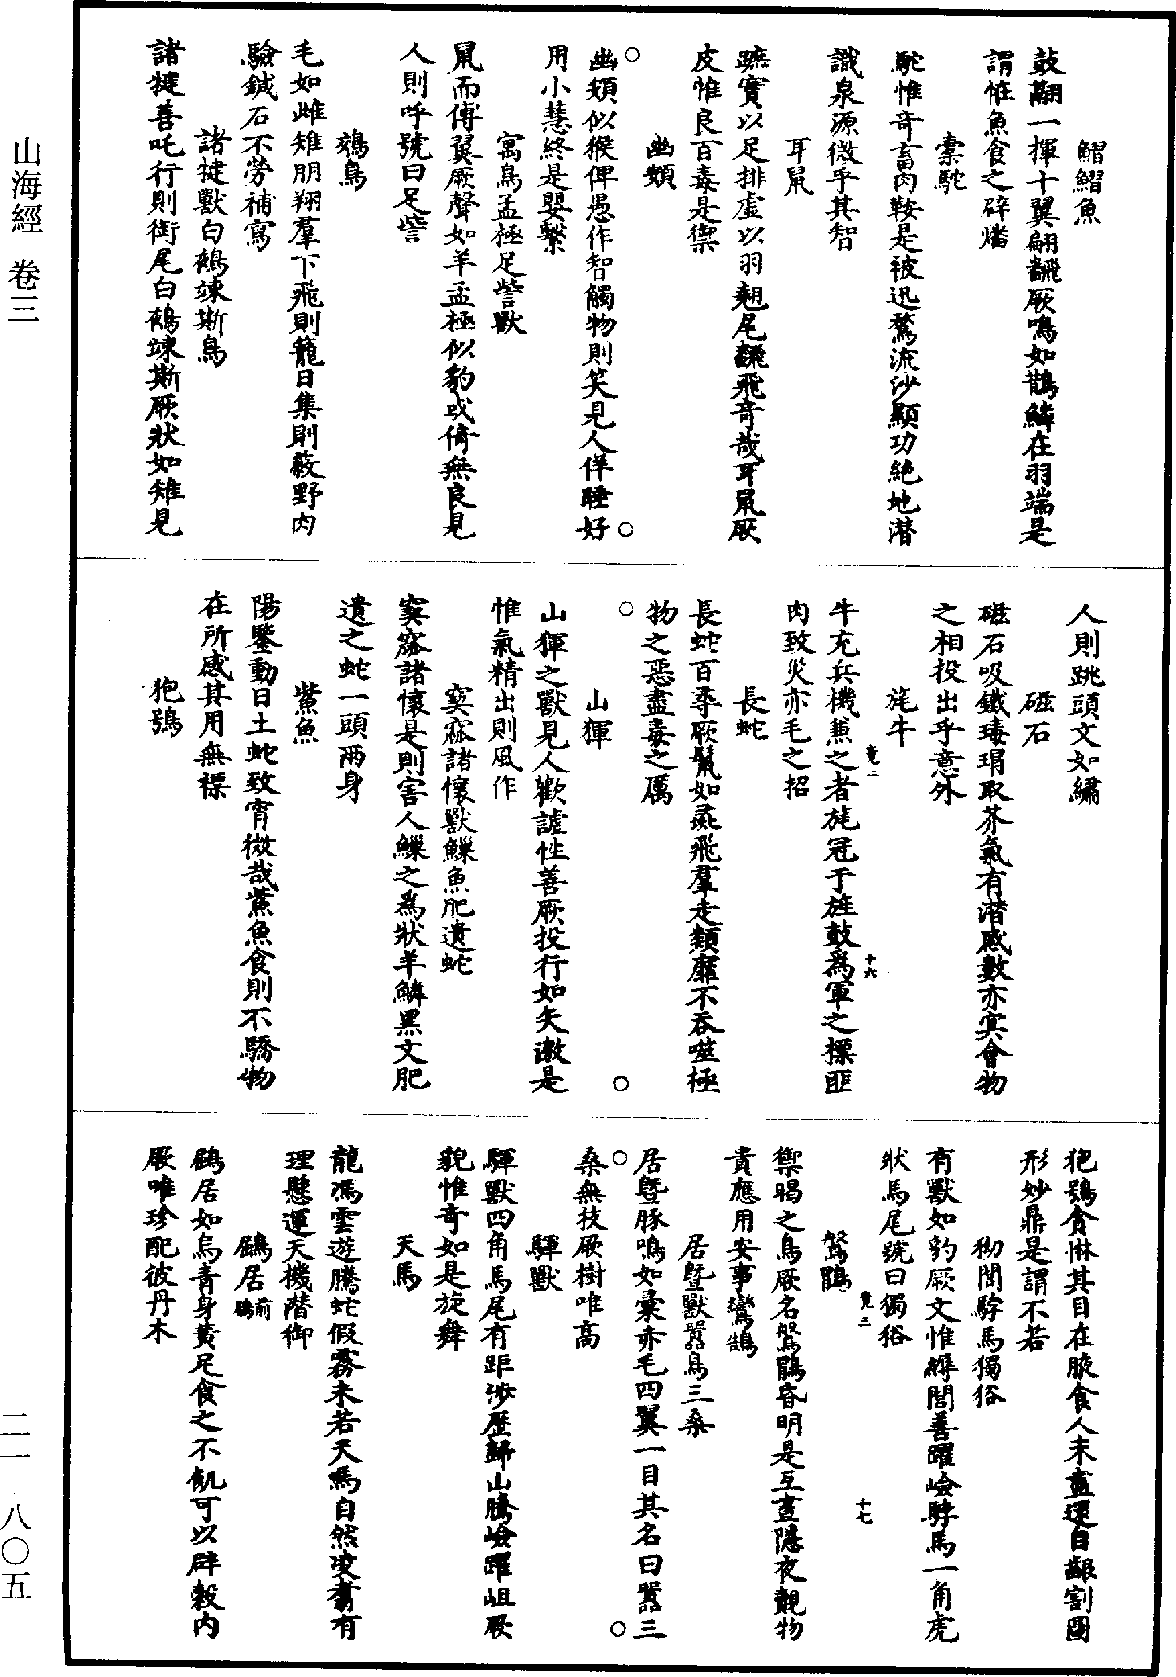 鰼鰼魚
鼓翮一揮十翼翩翻厥鳴如鵲鱗在羽端是
謂怪魚食之辟燔
橐駝
駝惟奇畜肉鞍是被迅騖流沙顯功絶地潛
識泉源微乎其智
耳鼠
蹠實以足排虛以羽翹尾翻飛奇哉耳鼠厥
皮惟良百毒是禦
幽頞
幽頞似猴俾愚作智觸物則笑見人佯睡好
用小慧終是嬰繫
寓鳥孟極足訾獸
鼠而傅翼厥聲如羊孟極似豹或倚無良見
人則呼號曰足訾
鵁鳥
毛如雌雉朋翔羣下飛則籠日集則蔽野肉
驗鍼石不勞補寫
諸揵獸白鵺竦斯鳥
諸揵善吒行則銜尾白鵺竦斯厥狀如雉見
人則跳頭文如繡
磁石
磁石吸鐵瑇瑁取芥氣有潛感數亦冥會物
之相投出乎意外
旄牛
牛充兵機兼之者旄冠于旌鼓爲軍之標匪
肉致災亦毛之招
長蛇
長蛇百尋厥鬣如彘飛羣走類靡不吞噬極
物之惡盡毒之厲
山𤟤
山𤟤之獸見人歡謔性善厥投行如矢激是
惟氣精出則風作
窫窳諸懷獸鱳魚肥遺蛇
窫窳諸懷是則害人鱳之爲狀羊鱗黑文肥
遺之蛇一頭兩身
鮆魚
陽鑒動日土蛇致宵微哉鮆魚食則不驕物
在所感其用無標
狍鴞
狍鴞貪惏其目在腋食人未盡還自齦割圖
形妙鼎是謂不若
狕閭騂馬獨狢
有獸如豹厥文惟縟閭善躍嶮騂馬一角虎
狀馬尾號曰獨狢
鷔鶥
禦暍之鳥厥名鷔鶥昏明是互晝隱夜覿物
貴應用安事鸞鵠
居暨獸囂鳥三桑
居暨豚鳴如彙赤毛四翼一目其名曰囂三
桑無枝厥樹唯高
驒獸
驒獸四角馬尾有距涉歷歸山騰嶮躍岨厥
貌惟奇如是旋舞
天馬
龍馮雲遊騰蛇假霧未若天馬自然凌翥有
理懸運天機潛御
鶌居
鶌居如烏青身黃足食之不飢可以辟穀内
厥唯珍配彼丹木
山海經 卷三
二一 八〇五